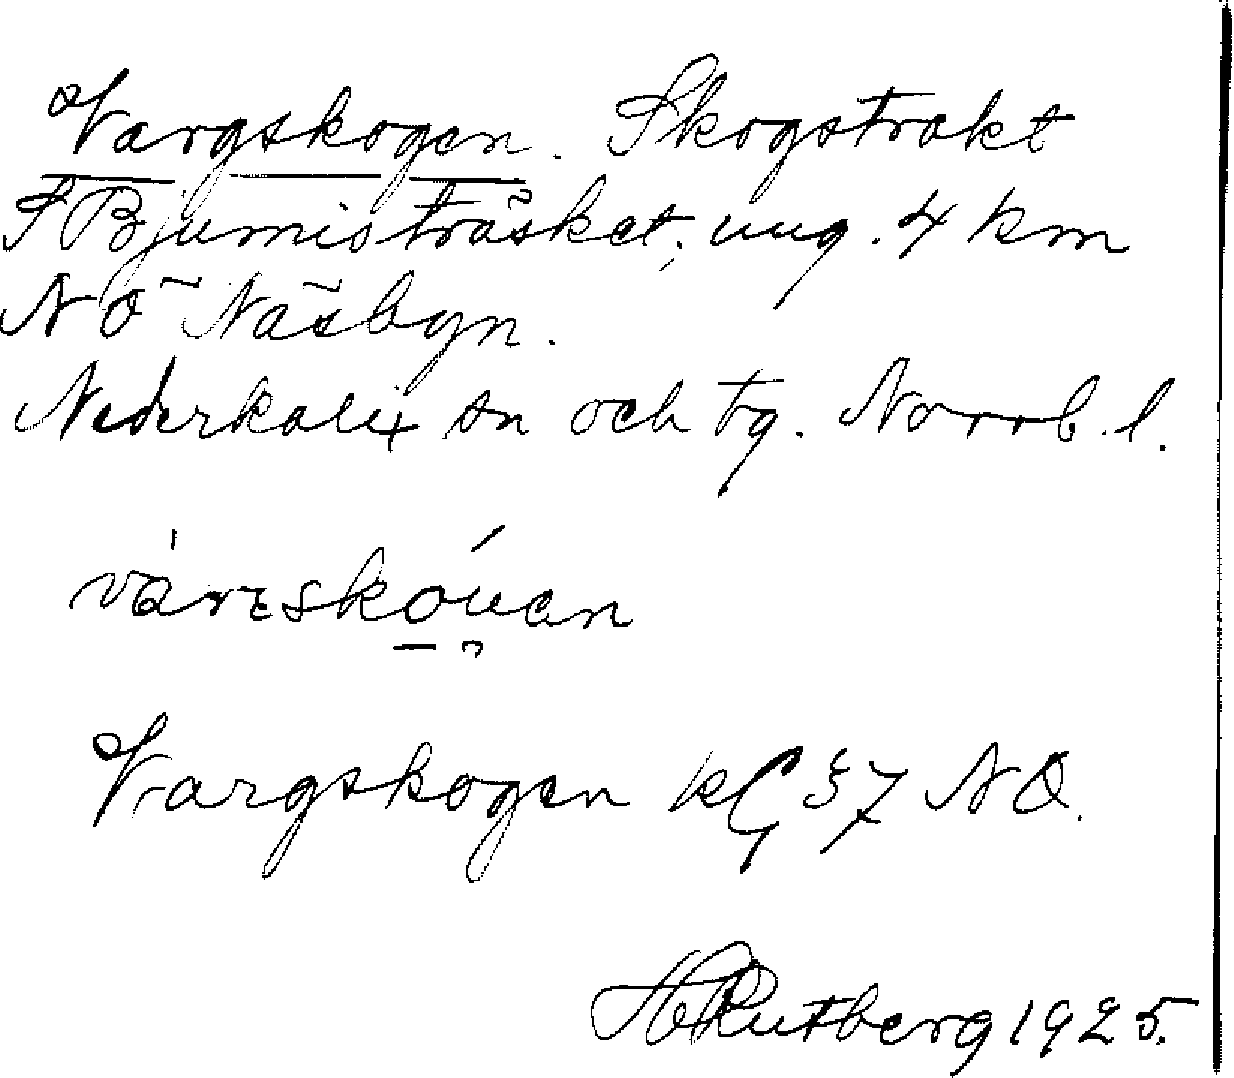 Vargskogen. Skogstrakt
I Bjumisträsket, ung. 4 km
NÖ Näsbyn.
Nederkalix sn och tg. Norrb. l.
Vargskogen kG 37 NO.
H Rutberg 1925.